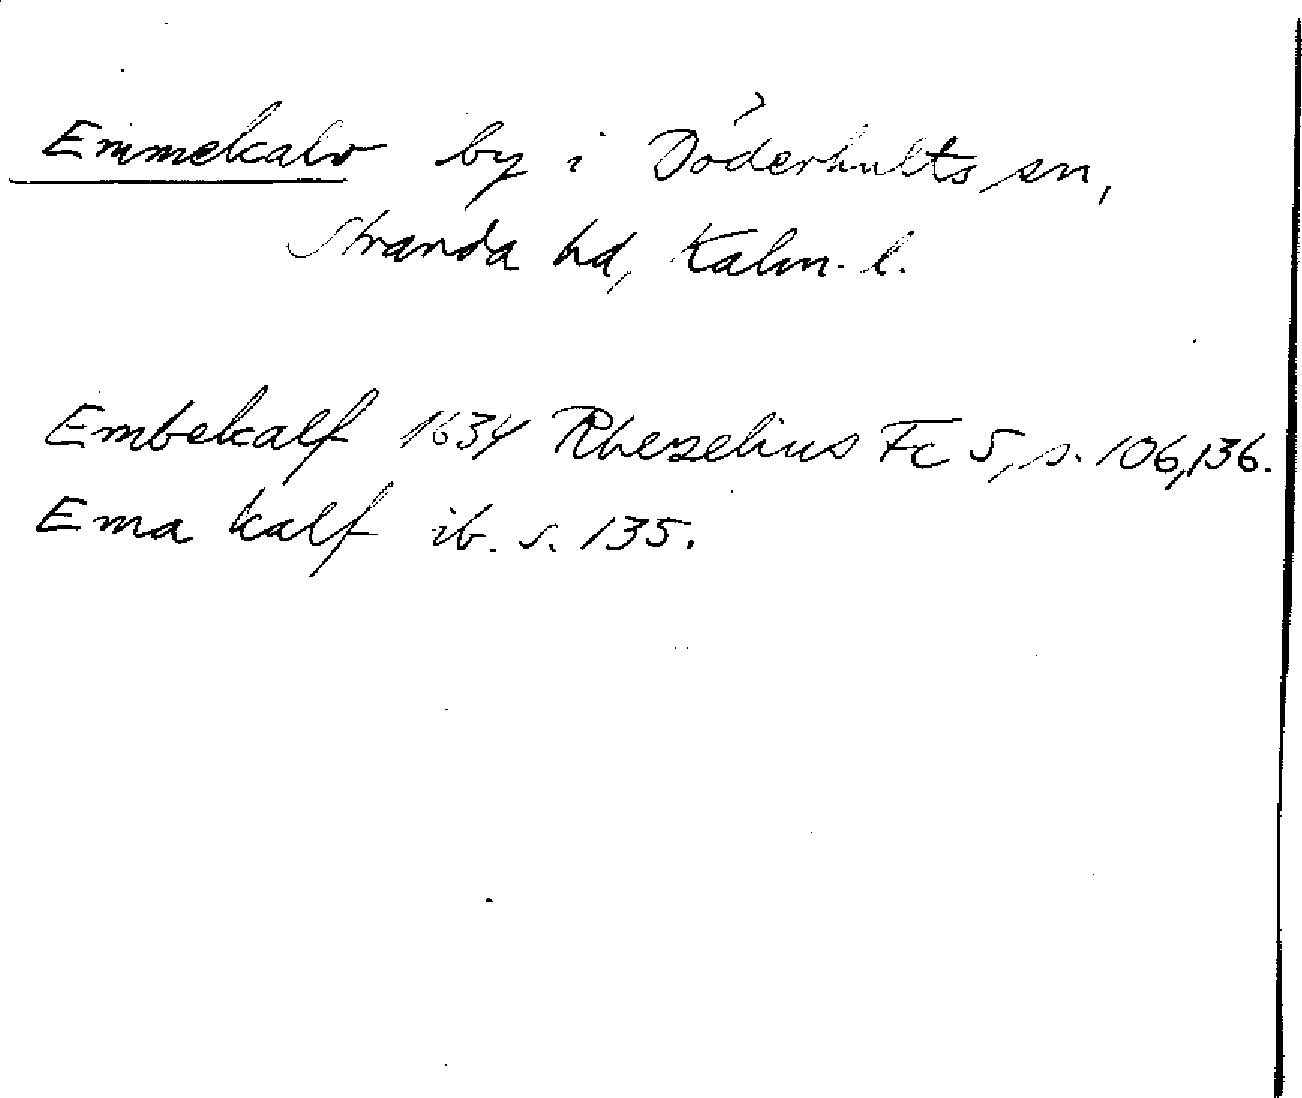 Emmekalv by i Döderhults sn,
Stranda hd, Kalm. l.
Embekalf 1634 Rhezelius Fc 5, s. 106, 136.
Ema kalf ib. s. 135.